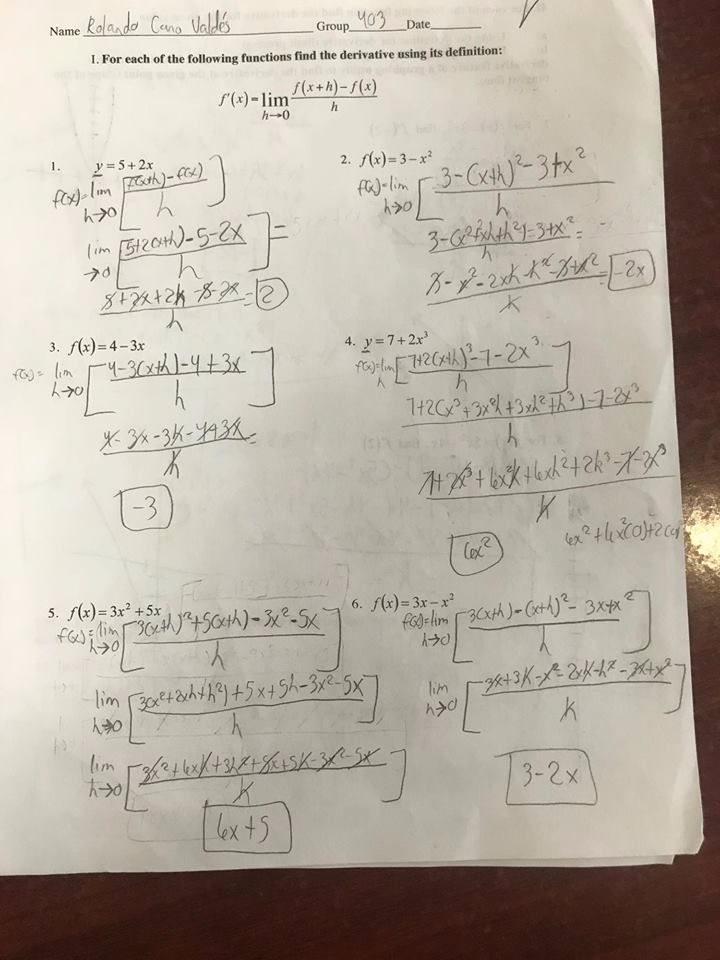 Name Rolando Cano Valdés Group 403 Date
I. For each of the following functions find the derivative using its definition:
f'(x) = lim h→0 f(x+h) − f(x) / h
1. y = 5 + 2x
f(x) = lim h→0 [f(x+h) − f(x) / h]
lim →0 [5+2(x+h) − 5 − 2x / h] =
5 + 2x + 2h − 5 − 2x / h = 2
2. f(x) = 3 − x²
f(x) = lim h→0 [3 − (x+h)² − 3 + x² / h
3 − (x² + xh + h²) = 3 + x² / h =
3 − x² − 2xh − h² − 3 + x² / h = −2x
3. f(x) = 4 − 3x
f(x) = lim h→0 [4 − 3(x+h) − 4 + 3x / h]
4 − 3x − 3h − 4 + 3x / h =
−3
4. y = 7 + 2x³
f(x) = lim h [7 + 2(x+h)³ − 7 − 2x³ / h]
7 + 2(x³ + 3x²h + 3xh² + h³) − 7 − 2x³ / h
7 + 2x³ + 6x²h + 6xh² + 2h³ − 7 − 2x³ / h
6x²
5. f(x) = 3x² + 5x
f(x) = lim h→0 [3(x+h)² + 5(x+h) − 3x² − 5x / h]
lim h→0 [3(x² + 2xh + h²) + 5x + 5h − 3x² − 5x / h]
lim h→0 [3x² + 6xh + 3h² + 5x + 5h − 3x² − 5x / h]
6x + 5
6. f(x) = 3x − x²
f(x) = lim h→0 [3(x+h) − (x+h)² − 3x + x² / h]
lim h→0 [3x + 3h − x² − 2xh − h² − 3x + x² / h]
3 − 2x